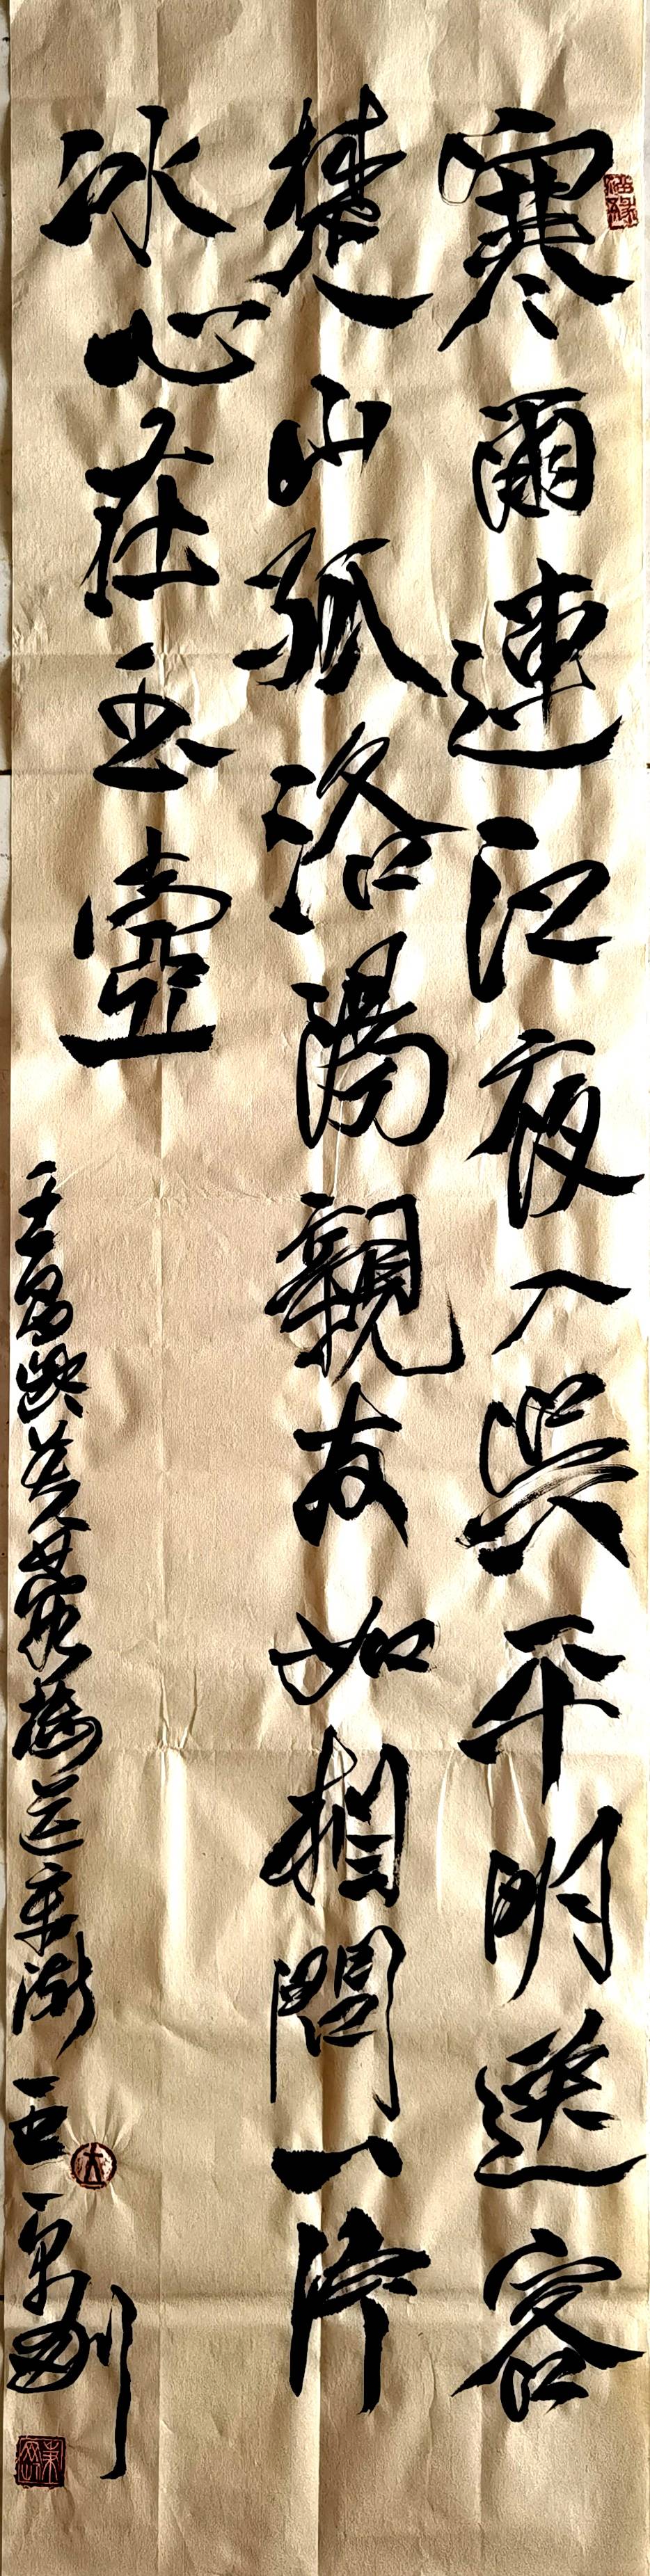 寒雨連江夜入吳平明送客
楚山孤洛陽親友如相問一片
冰心在玉壺
王昌齡芙蓉樓送辛漸